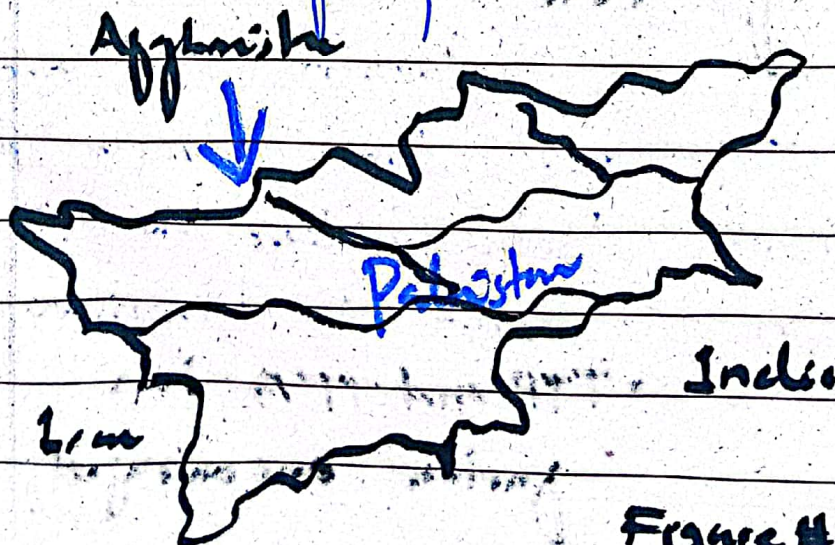 Afghnista
Pakistan
India
Iran
Figure #